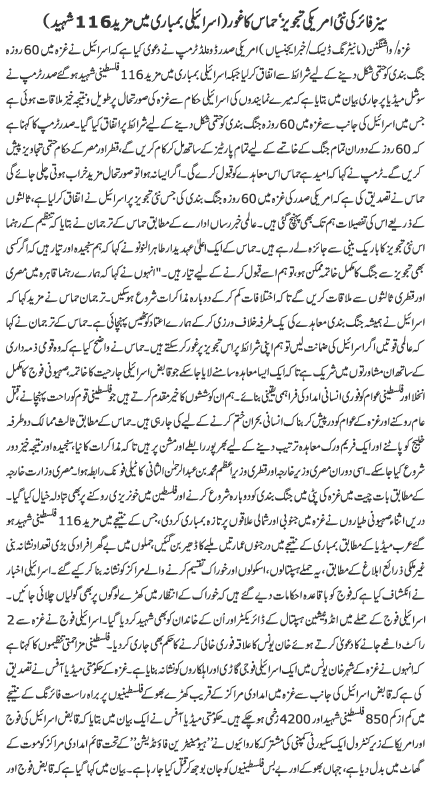 سیز فائر کی نئی امریکی تجویز‘ حماس کا غور (اسرائیلی بمباری میں مزید 116 شہید)
غزہ/ واشنگٹن (مانیٹرنگ ڈیسک/ خبر ایجنسیاں) امریکی صدر ڈونلڈ ٹرمپ نے دعویٰ کیا ہے کہ اسرائیل نے غزہ میں 60 روزہ
جنگ بندی کو حتمی شکل دینے کے لیے شرائط سے اتفاق کر لیا جبکہ اسرائیلی بمباری میں مزید 116 فلسطینی شہید ہو گئے صدر ٹرمپ نے
سوشل میڈیا پر جاری بیان میں بتایا ہے کہ میرے نمائندوں کی اسرائیلی حکام سے غزہ کی صورتحال پر طویل و نتیجہ خیز ملاقات ہوئی ہے
جس میں اسرائیل کی جانب سے غزہ میں 60 روزہ جنگ بندی کو حتمی شکل دینے کے لیے شرائط پر اتفاق کیا گیا۔ صدر ٹرمپ کا کہنا ہے کہ
60 روز کے دوران تمام جنگ کے خاتمے کے لیے تمام پارٹیز کے ساتھ مل کر کام کریں گے، قطر اور مصر کے حکام حتمی تجاویز پیش
کریں گے۔ ٹرمپ نے کہا امید ہے حماس اس معاہدے کو قبول کرے گی۔ اگر ایسا نہ ہوا تو صورتحال مزید خراب ہوتی چلی جائے گی
حماس نے تصدیق کی ہے کہ امریکی صدر کی غزہ میں 60 روزہ جنگ بندی کی جس نئی تجویز پر اسرائیل نے اتفاق کر لیا ہے، ثالثوں
کے ذریعے اس کی تفصیلات ہم تک بھی پہنچ گئی ہیں۔ عالمی خبر رساں ادارے کے مطابق حماس کے ترجمان نے بتایا کہ تنظیم کے رہنما
اس نئی تجویز کا باریک بینی سے جائزہ لے رہے ہیں۔ حماس کے ایک اعلیٰ عہدیدار طاہر النونو نے کہا کہ ہم سنجیدہ اور تیار ہیں کہ اگر کسی
بھی تجویز سے جنگ کا مکمل خاتمہ ممکن ہو، تو ہم اسے قبول کرنے کے لیے تیار ہیں۔"انہوں نے کہا کہ ہمارے رہنما قاہرہ میں مصری
اور قطری ثالثوں سے ملاقات کریں گے تاکہ اختلافات کم کر کے دوبارہ مذاکرات شروع ہو سکیں۔ ترجمان حماس نے مزید کہا کہ
اسرائیل نے ہمیشہ جنگ بندی معاہدے کی یک طرفہ خلاف ورزی کر کے ہمارے اعتماد کو ٹھیس پہنچائی ہے۔ حماس کے ترجمان نے کہا
کہ عالمی قوتیں اگر اس بار اسرائیل کی ضمانت لیں تو ہم اپنی شرائط پر اس تجویز پر غور کر سکتے ہیں۔ حماس نے واضح کیا ہے کہ وہ قومی ذمہ داری
کے ساتھ مشاورتوں میں شریک ہے تاکہ ایک ایسا معاہدہ سامنے لایا جا سکے جو قابض اسرائیلی جارحیت کا خاتمہ، صہیونی فوج کا مکمل
انخلا اور فلسطینی عوام کو فوری انسانی امداد کی فراہمی یقینی بنائے۔ ہم ان کوششوں کا خیر مقدم کرتے ہیں جو فلسطینی قوم کو راحت پہنچانے، قتل
عام روکنے اور غزہ کے عوام کو درپیش کربناک انسانی بحران ختم کرنے کے لیے کی جا رہی ہیں۔ حماس کے مطابق ثالث ممالک دو طرفہ
خلیج کو پاٹنے اور ایک فریم ورک معاہدہ ترتیب دینے کے لیے بھرپور رابطے اور مشن پر ہیں تاکہ مذاکرات کا نیا، سنجیدہ اور نتیجہ خیز دور
شروع کیا جا سکے۔ اسی دوران مصری وزیر خارجہ اور قطری وزیر اعظم محمد بن عبدالرحمٰن الثانی کا ٹیلی فونک رابطہ ہوا۔ مصری وزارت خارجہ
کے مطابق بات چیت میں غزہ کی پٹی میں جنگ بندی کو دوبارہ شروع کرنے اور فلسطین میں خونریزی روکنے پر بھی تبادلہ خیال کیا گیا۔
دریں اثنا صہیونی طیاروں نے غزہ میں جنوبی اور شمالی علاقوں پر تازہ بمباری کر دی، جس کے نتیجے میں مزید 116 فلسطینی شہید ہو
گئے عرب میڈیا کے مطابق بمباری کے نتیجے میں درجنوں عمارتیں ملبے کا ڈھیر بن گئیں حملوں میں بے گھر افراد کی بڑی تعداد نشانہ بنی
غیر ملکی ذرائع ابلاغ کے مطابق، یہ حملے ہسپتالوں، اسکولوں اور خوراک تقسیم کرنے والے مراکز کو نشانہ بنا کر کیے گئے۔ اسرائیلی اخبار
نے انکشاف کیا ہے کہ فوج کو باقاعدہ احکامات دیے گئے ہیں کہ خوراک کے انتظار میں کھڑے لوگوں پر بھی گولیاں چلائی جائیں۔
اسرائیلی فوج کے حملے میں انڈونیشین ہسپتال کے ڈائریکٹر اور اُن کے خاندان کو بھی شہید کر دیا گیا۔ اسرائیلی فوج نے غزہ سے 2
راکٹ داغے جانے کا دعویٰ کرتے ہوئے خان یونس کا علاقہ فوری خالی کرنے کا حکم بھی جاری کر دیا۔ فلسطینی مزاحمتی تنظیموں کا کہنا ہے
کہ انہوں نے غزہ کے شہر خان یونس میں ایک اسرائیلی فوجی گاڑی اور اہلکاروں کو نشانہ بنایا ہے۔ غزہ کے حکومتی میڈیا آفس نے تصدیق
کی ہے کہ قابض اسرائیل کی جانب سے غزہ میں امدادی مراکز کے قریب کھڑے بھوکے فلسطینیوں پر براہ راست فائرنگ کے نتیجے
میں کم از کم 850 فلسطینی شہید اور 4200 زخمی ہو چکے ہیں۔ حکومتی میڈیا آفس نے ایک بیان میں بتایا کہ قابض اسرائیل کی فوج
اور امریکا کے زیر کنٹرول ایک سکیورٹی کمپنی کی مشترکہ کارروائیوں نے ”ہیومینیٹرین فاؤنڈیشن“ کے تحت قائم امدادی مراکز کو موت کے
گھاٹ میں بدل دیا ہے، جہاں بھوکے اور بے بس فلسطینیوں کو جان بوجھ کر قتل کیا جا رہا ہے۔ بیان میں کہا گیا ہے کہ قابض فوج اور